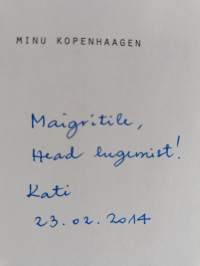 MINU KOPENHAAGEN
Maigritile,
Head lugemist!
Kati
23.02.2014